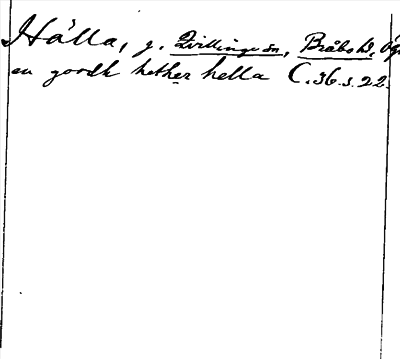 Hälla, g. Kvillinge sn, Bråbo hd, Ög.
en gardh hether hella C. 36 s. 22.